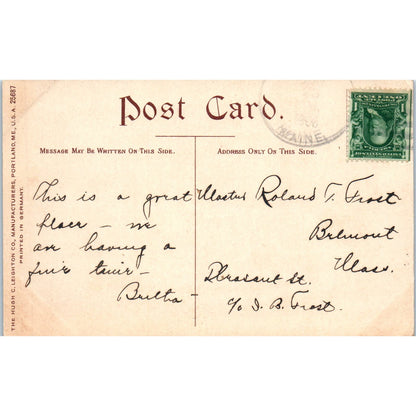 Post Card.
MESSAGE MAY BE WRITTEN ON THIS SIDE.
ADDRESS ONLY ON THIS SIDE.
THE HUGH C. LEIGHTON CO., MANUFACTURERS, PORTLAND, ME., U.S.A. 25687
PRINTED IN GERMANY.
MAINE
This is a great
place – we
are having a
fine time –
Master Roland T. Frost
Belmont
Mass.
Pleasant St.
c/o I. B. Frost.